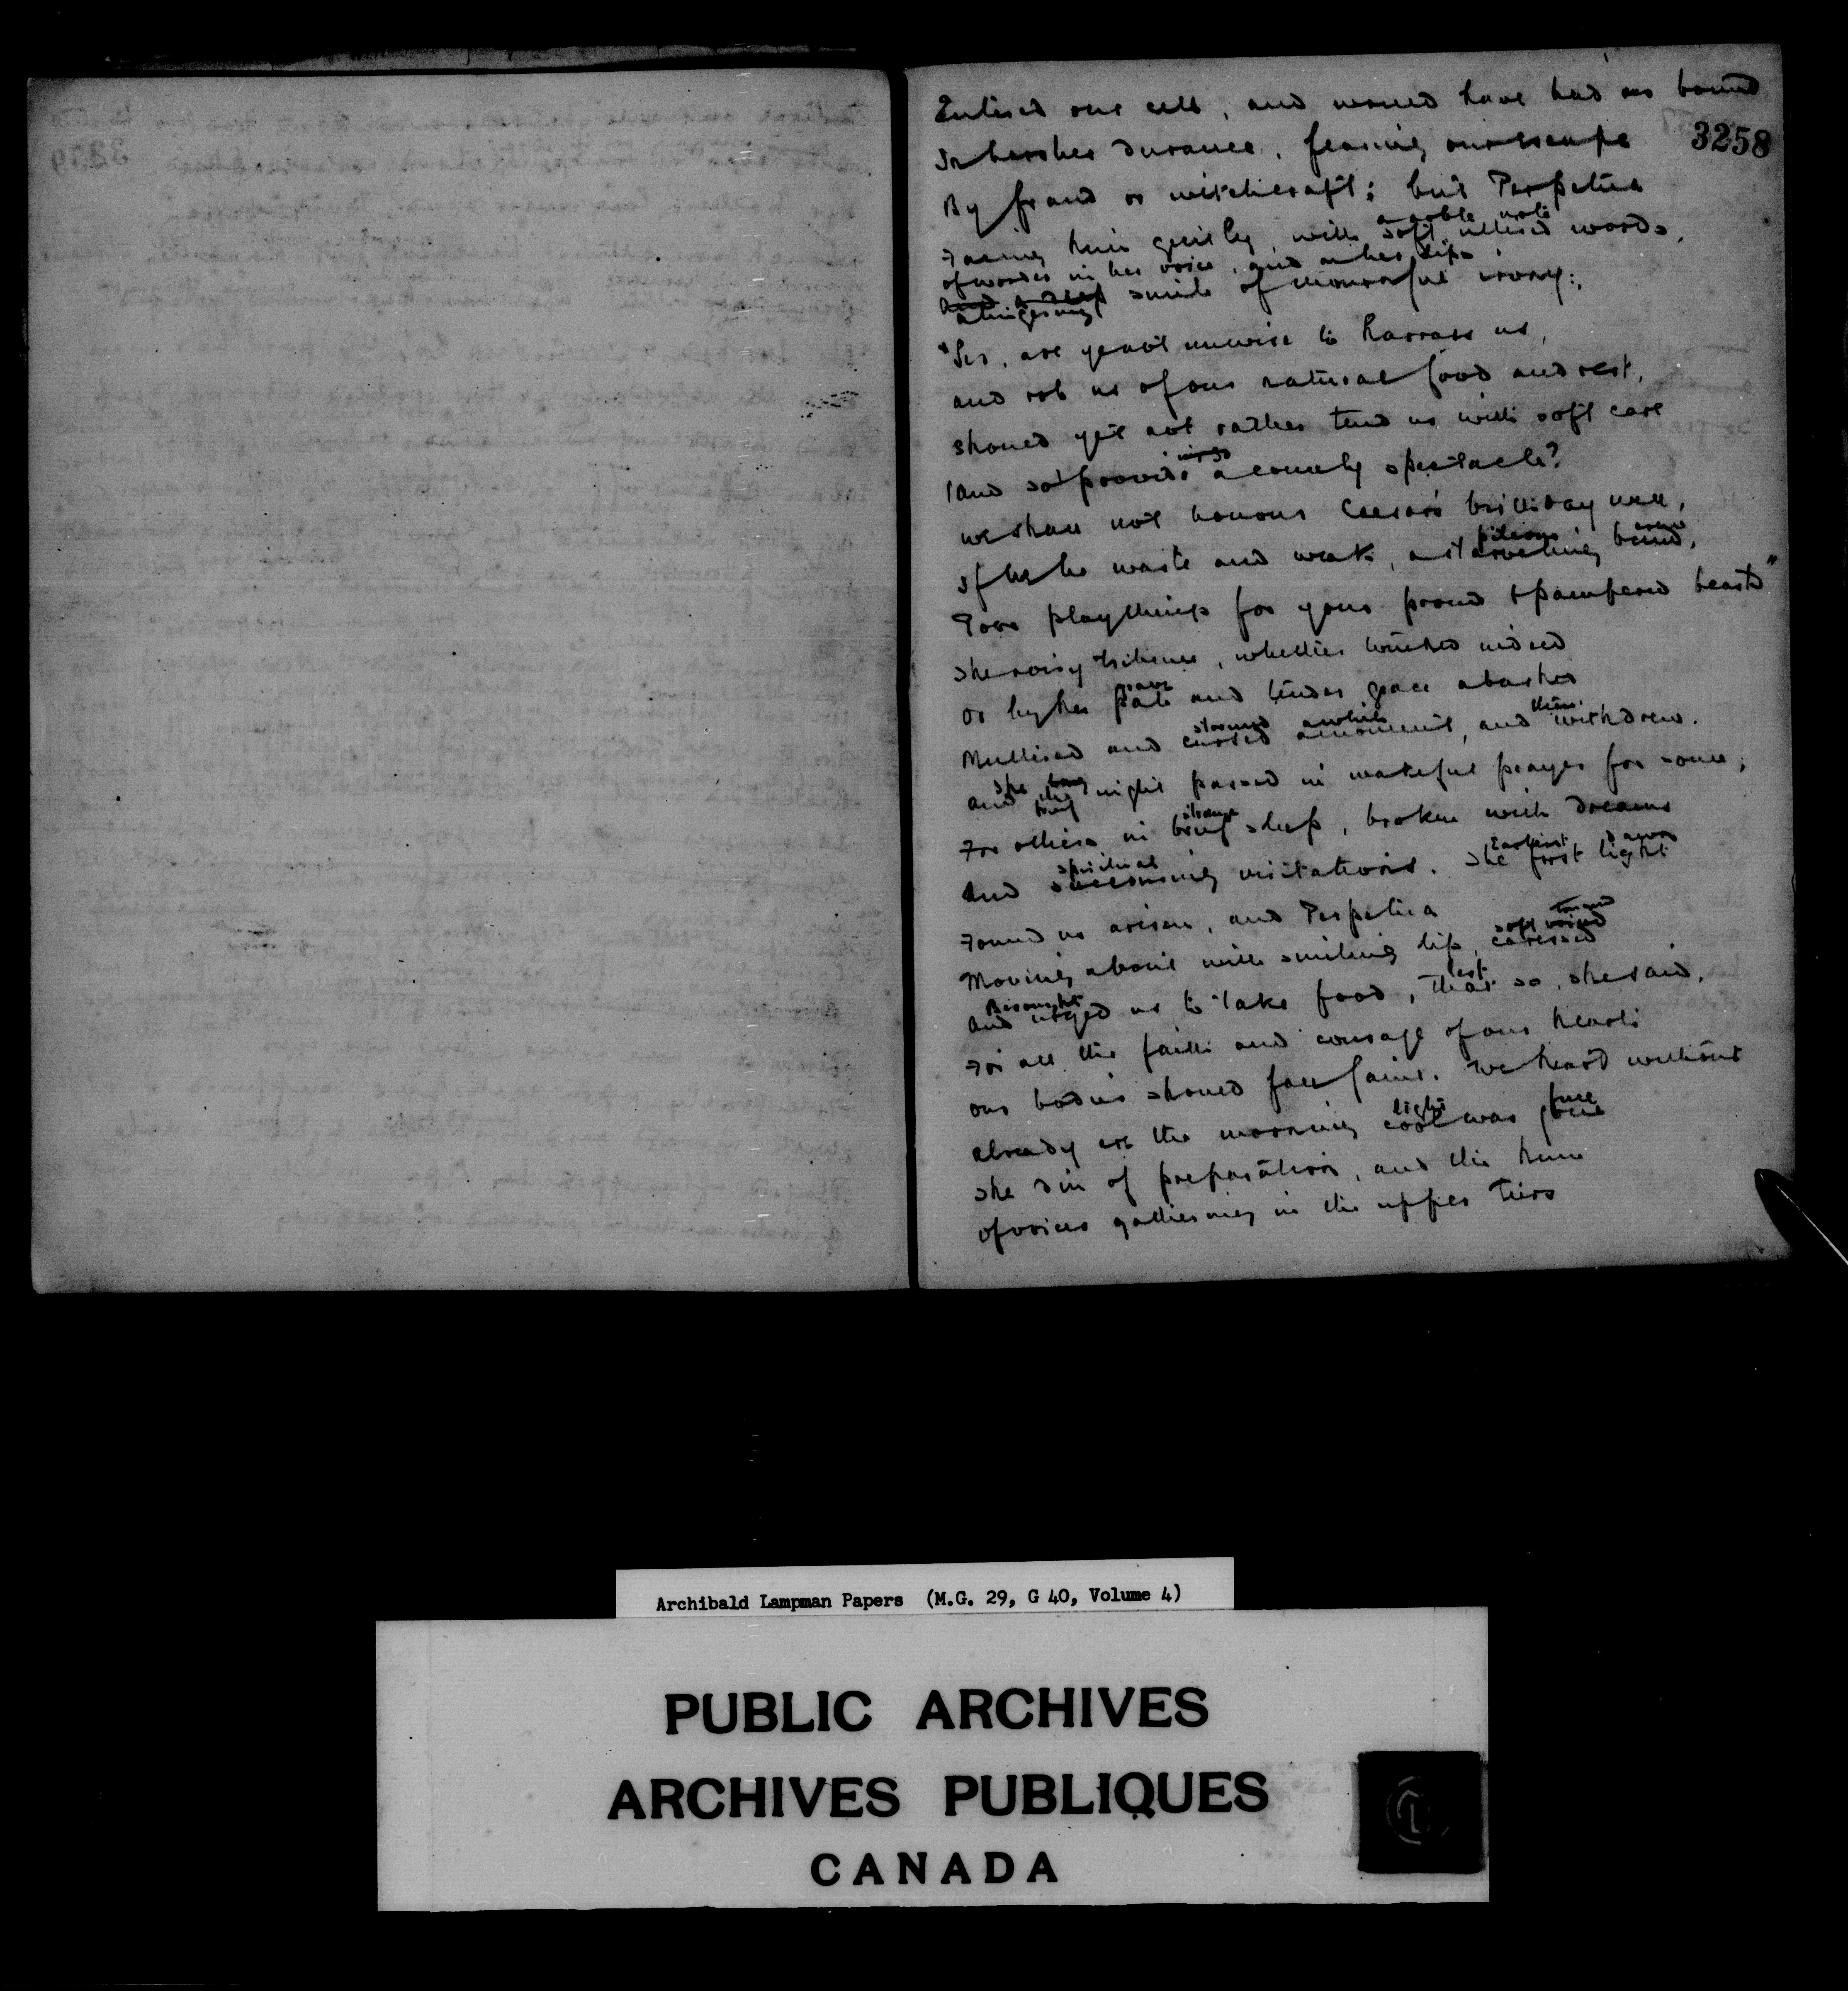 Entered our cell, and would have had us bound
3258
In harsher durance, fearing our escape
By fraud or witchcraft; but Perpetua
a noble note
Facing him quietly, with soft uttered words,
of wonder in her voice, and on her lips
And a deep smile of mournful irony:
a lingering
"Sir, are ye not unwise to harrass us,
and rob us of our natural food and rest,
should ye not rather tend us with soft care
and so provide a comely spectacle?
we shall not honour Caesar's birthday well,
piteous crew
If we be waste and weak, a starveling band,
Poor playthings for your proud & pampered beasts"
The noisy tribune, whether touched indeed
grave
Or by her pale and tender grace abashed
stormed awhile then
Muttered and cursed a moment, and withdrew.
The long
and the night passed in wakeful prayer for some;
brief strange
For others in brief sleep, broken with dreams
spiritual Earliest dawn
And visitations. The first light
Found us arisen, and Perpetua
soft voiced
Moving about with smiling lips, caressed
Besought lest
and urged us to take food, that so, she said,
For all the faith and courage of our hearts
our bodies should fall faint. We heard without
light full
already ere the morning cool was gone
The din of preparation, and the hum
of voices gathering in the upper tiers
Archibald Lampman Papers (M.G. 29, G 40, Volume 4)
PUBLIC ARCHIVES
ARCHIVES PUBLIQUES
CANADA